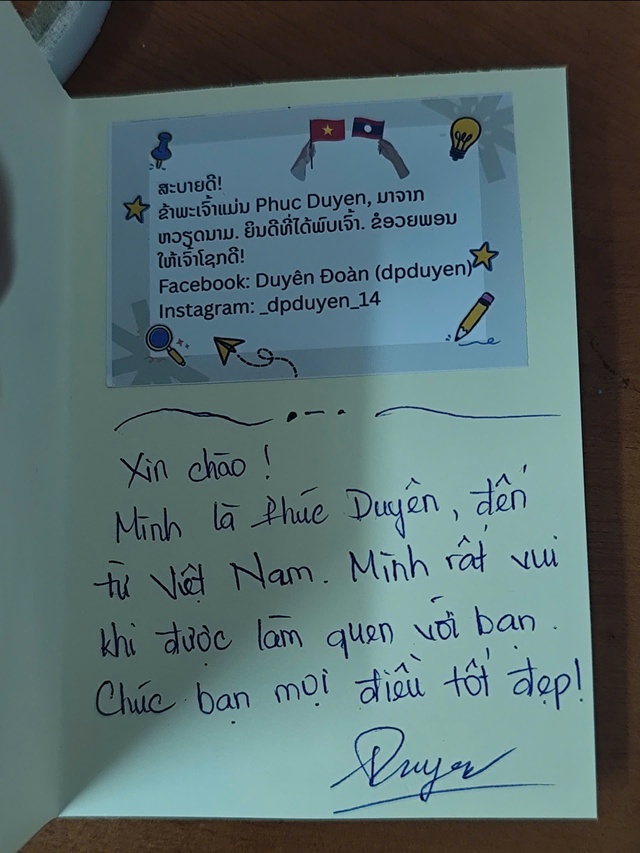 ສະບາຍດີ!
ຂ້າພະເຈົ້າແມ່ນ Phuc Duyen, ມາຈາກ
ຫວຽດນາມ. ຍິນດີທີ່ໄດ້ພົບເຈົ້າ. ຂໍອວຍພອນ
ໃຫ້ເຈົ້າໂຊກດີ!
Facebook: Duyên Đoàn (dpduyen)
Instagram: _dpduyen_14
Xin chào!
Mình là Phúc Duyên, đến
từ Việt Nam. Mình rất vui
khi được làm quen với bạn.
Chúc bạn mọi điều tốt đẹp!
Duyen